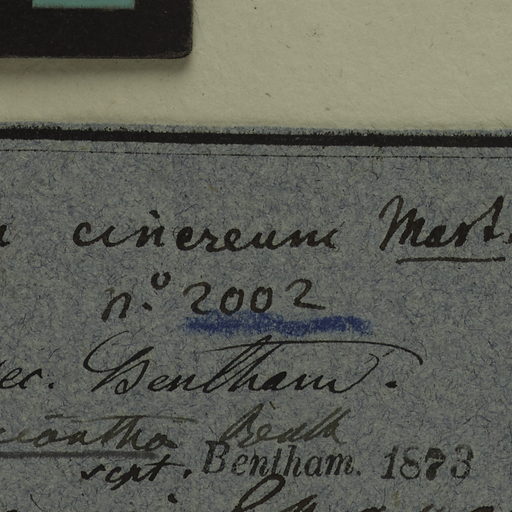 cinereum Mart.
n.º 2002
ec. Bentham.
iantha Benth
script. Bentham. 1873